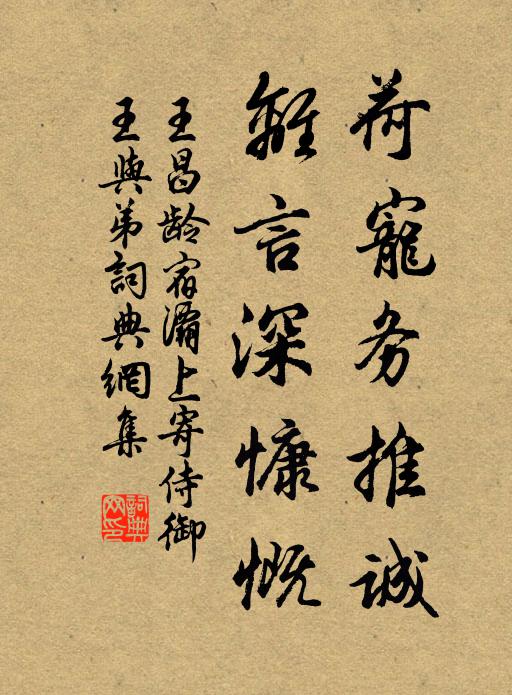 荷寵务推誠
離言深慷慨
王昌龄宿灞上寄侍御
王與弟詞典網集
詞典网印